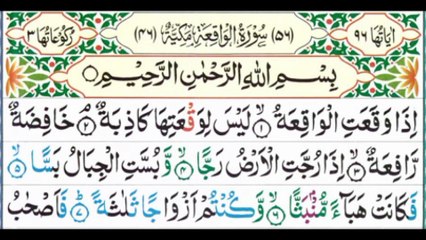 اٰیَاتُهَا ٩٦ (٥٦) سُوْرَةُ الْوَاقِعَةِ مَكِّیَّةٌ (٤٦) رُكُوْعَاتُهَا ٣
بِسْمِ اللّٰهِ الرَّحْمٰنِ الرَّحِیْمِ
اِذَا وَقَعَتِ الْوَاقِعَةُ ۙ﴿١﴾ لَیْسَ لِوَقْعَتِهَا كَاذِبَةٌ ۘ﴿٢﴾ خَافِضَةٌ
رَّافِعَةٌ ۙ﴿٣﴾ اِذَا رُجَّتِ الْاَرْضُ رَجًّا ۙ﴿٤﴾ وَّبُسَّتِ الْجِبَالُ بَسًّا ۙ﴿٥﴾
فَكَانَتْ هَبَآءً مُّنْۢبَثًّا ۙ﴿٦﴾ وَّكُنْتُمْ اَزْوَاجًا ثَلٰثَةً ؕ﴿٧﴾ فَاَصْحٰبُ